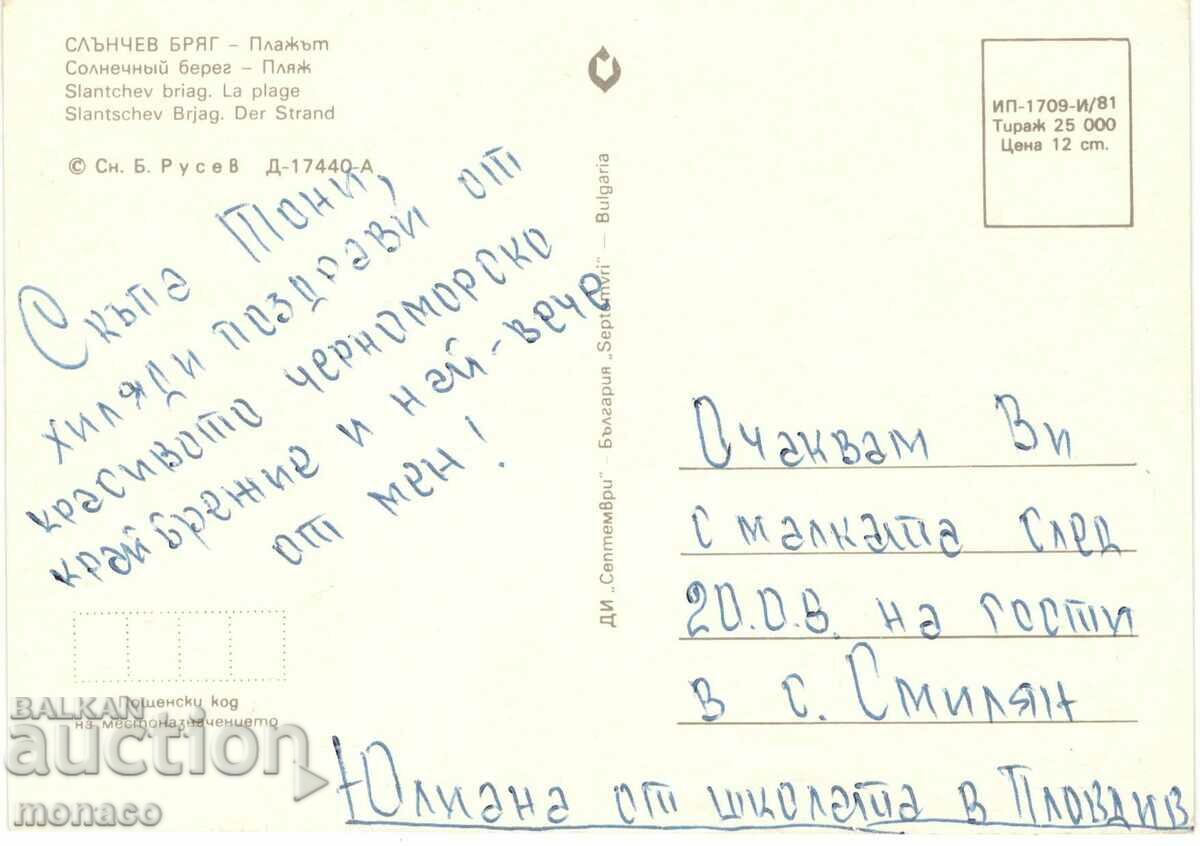 СЛЪНЧЕВ БРЯГ – Плажът
Солнечный берег – Пляж
Slantchev briag. La plage
Slantschev Brjag. Der Strand
© Сн. Б. Русев Д-17440-А
ИП-1709-И/81
Тираж 25 000
Цена 12 ст.
Скъпа Тони,
хиляди поздрави от
красивото черноморско
крайбрежие и най-вече
от мен!
ДИ „Септември" – България „Septemvri" – Bulgaria
Очаквам Ви
с малката след
20.08. на гости
в с. Смилян
Юлиана от школата в Пловдив
Пощенски код
на местоназначението
BALKAN
auction
monaco